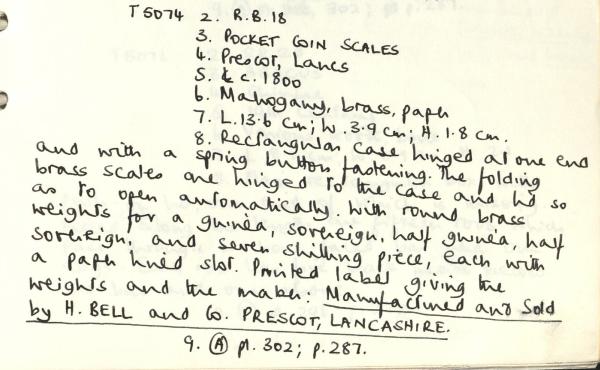 T5074 2. R.B.18
3. POCKET COIN SCALES
4. Prescot, Lancs
5. c.1800
6. Mahogany, brass, paper
7. L.13.6 cm; W.3.9 cm; H.1.8 cm.
8. Rectangular case hinged at one end
and with a spring button fastening. The folding
brass scales are hinged to the case and lid so
as to open automatically. With round brass
weights for a guinea, sovereign, half guinea, half
sovereign, and seven shilling piece, each with
a paper lined slot. Printed label giving the
weights and the maker: Manufactured and Sold
by H. BELL and Co. PRESCOT, LANCASHIRE.
9. (A) pl. 302; p.287.